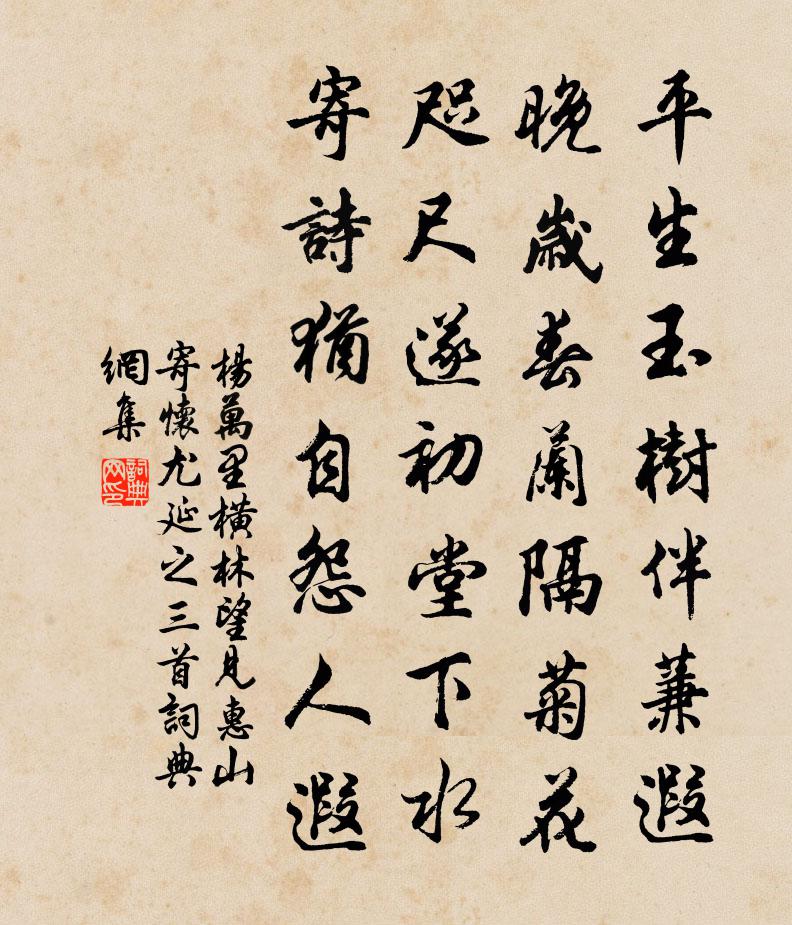 平生玉樹伴蒹遐
晚歲春蘭隔菊花
咫尺遂初堂下水
寄詩猶自怨人遐
楊萬里橫林望見惠山
寄懷尤延之三首詞典
網集
詞典
网印